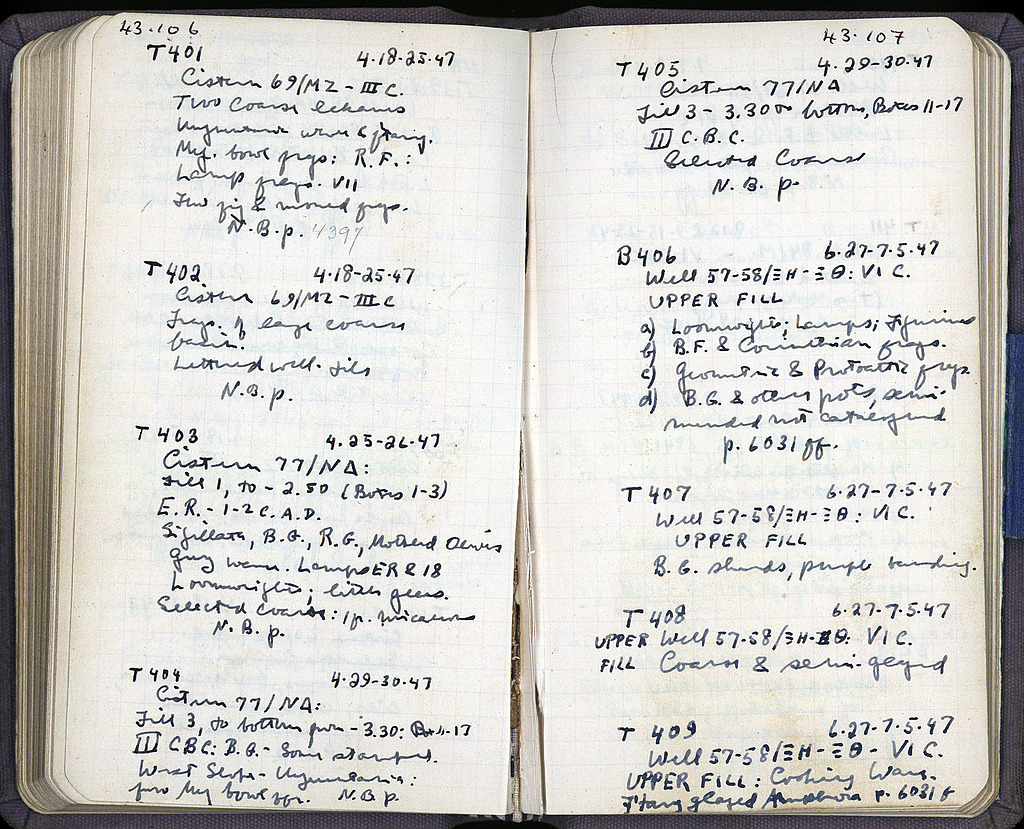 43.106
T 401 4.18-25.47
Cistern 69/MZ - III C.
Two Coarse lekanis
Mg. bowl frgs: R.F.:
Lamp frags. VII
N.B. p. 4397
T 402 4.18-25.47
Cistern 69/MZ - III C
Frags. of large coarse
basin.
Lettered well-tils
N.B. p.
T 403 4.25-26.47
Cistern 77/NA:
Fill 1, to - 2.50 (Boxes 1-3)
E.R. - 1-2 C. A.D.
Sigillata, B.G., R.G.,
Gray ware. Lamps ER & 18
Loomweights; little glass.
Selected Coarse: 1 p. micaceous
N.B. p.
T 404 4.29-30.47
Cistern 77/NA:
Fill 3, to bottom from - 3.30: Box 11-17
III C.B.C: B.G. - Some stamped.
West Slope -
Mg bowl N.B. p.
43.107
T 405 4.29-30.47
Cistern 77/NA
Fill 3 - 3.30 to bottom, Boxes 11-17
III C. B.C.
Selected Coarse
N.B. p.
B 406 6.27-7.5.47
Well 57-58/ΞH-ΞΘ: VI C.
UPPER FILL
a) Loomweights; Lamps; Figurines
b) B.F. & Corinthian frags.
c) Geometric & Protoattic frags.
d) B.G. & other pots, semi-
mended not catalogued
p. 6031 ff.
T 407 6.27-7.5.47
Well 57-58/ΞH-ΞΘ: VI C.
UPPER FILL
B.G. sherds, purple banding.
T 408 6.27-7.5.47
UPPER Well 57-58/ΞH-ΞΘ: VI C.
FILL Coarse & semi-glazed
T 409 6.27-7.5.47
Well 57-58/ΞH-ΞΘ - VI C.
UPPER FILL: Cooking Ware.
glazed Amphora p. 6031 f